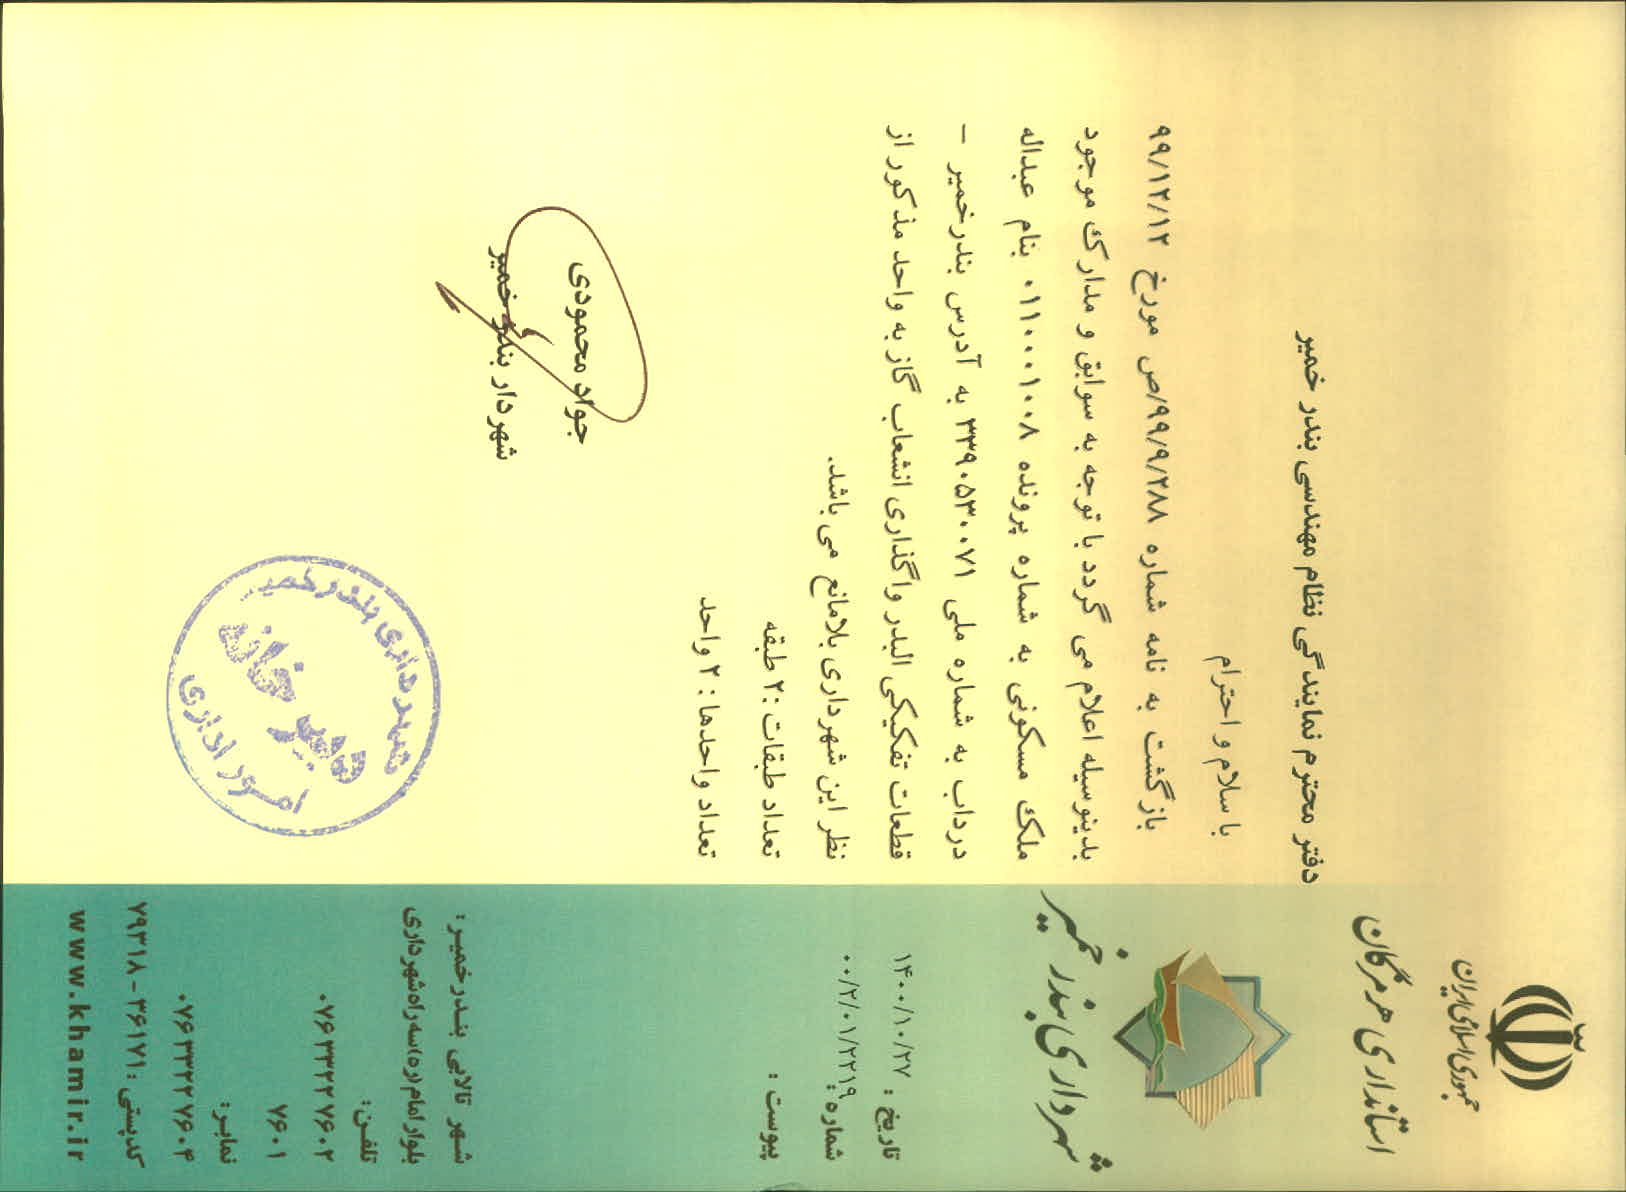 جمهوری اسلامی ایران
استانداری هرمزگان
شهرداری بندر خمیر
تاریخ : ۱۴۰۰/۱۰/۲۷
شماره: ۰۰/۲/۰۱/۲۲۱۹
پیوست :
دفتر محترم نمایندگی نظام مهندسی بندر خمیر
با سلام و احترام
بازگشت به نامه شماره ۹۹/۹/۲۸۸/ص مورخ ۹۹/۱۲/۱۲
بدینوسیله اعلام می گردد با توجه به سوابق و مدارک موجود
ملک مسکونی به شماره پرونده ۰۱۱۰۰۰۱۰۰۸ بنام عبداله
درداب به شماره ملی ۳۳۹۰۵۳۰۰۷۱ به آدرس بندرخمیر -
قطعات تفکیکی البدر واگذاری انشعاب گاز به واحد مذکور از
نظر این شهرداری بلامانع می باشد.
تعداد طبقات :۲ طبقه
تعداد واحدها : ۲ واحد
جواد محمودی
شهردار بندر خمیر
شهرداری بندر خمیر
دبیرخانه
امور اداری
شهر تالابی بندرخمیر:
بلوار امام(ره)سه راه شهرداری
تلفن:
۰۷۶۳۳۲۲۷۶۰۲
۷۶۰۱
نمابر:
۰۷۶۳۳۲۲۷۶۰۴
کدپستی : ۳۶۱۷۱ - ۷۹۳۱۸
www.khamir.ir